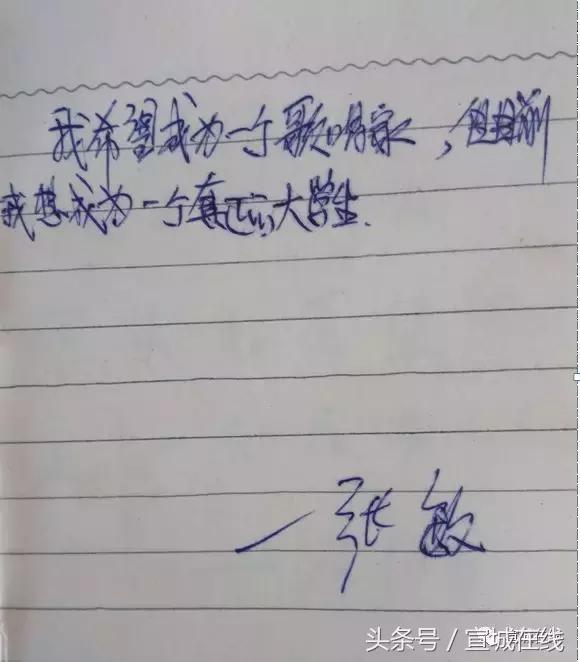 我希望成为一个歌唱家，但目前
我想成为一个真正的大学生.
—张敏
头条号／宣城在线